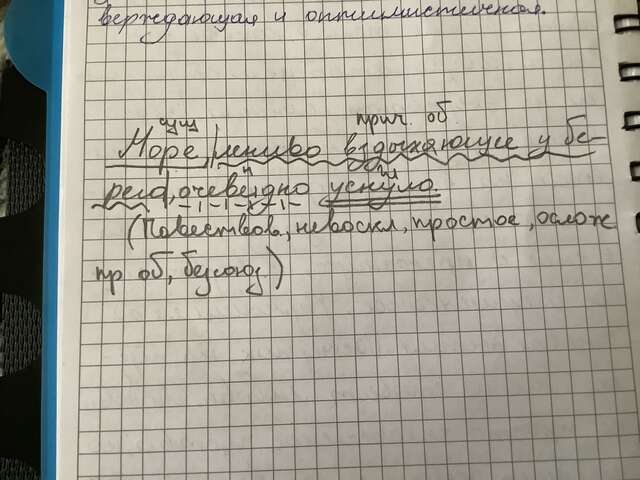 верждающая и оптимистичная.
сущ прич. об.
Море, лениво вздыхающее у бе-
рега, очевидно уснуло.
(Повествов, невоскл, простое, ослож
пр об, бессоюз)